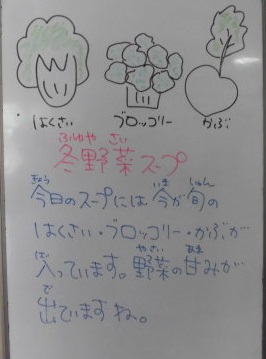 はくさい ブロッコリー かぶ
ふゆやさい
冬野菜スープ
きょう いま しゅん
今日のスープには今が旬の
はくさい・ブロッコリー・かぶが
はい やさい あま
入っています。野菜の甘みが
で
出ていますね。